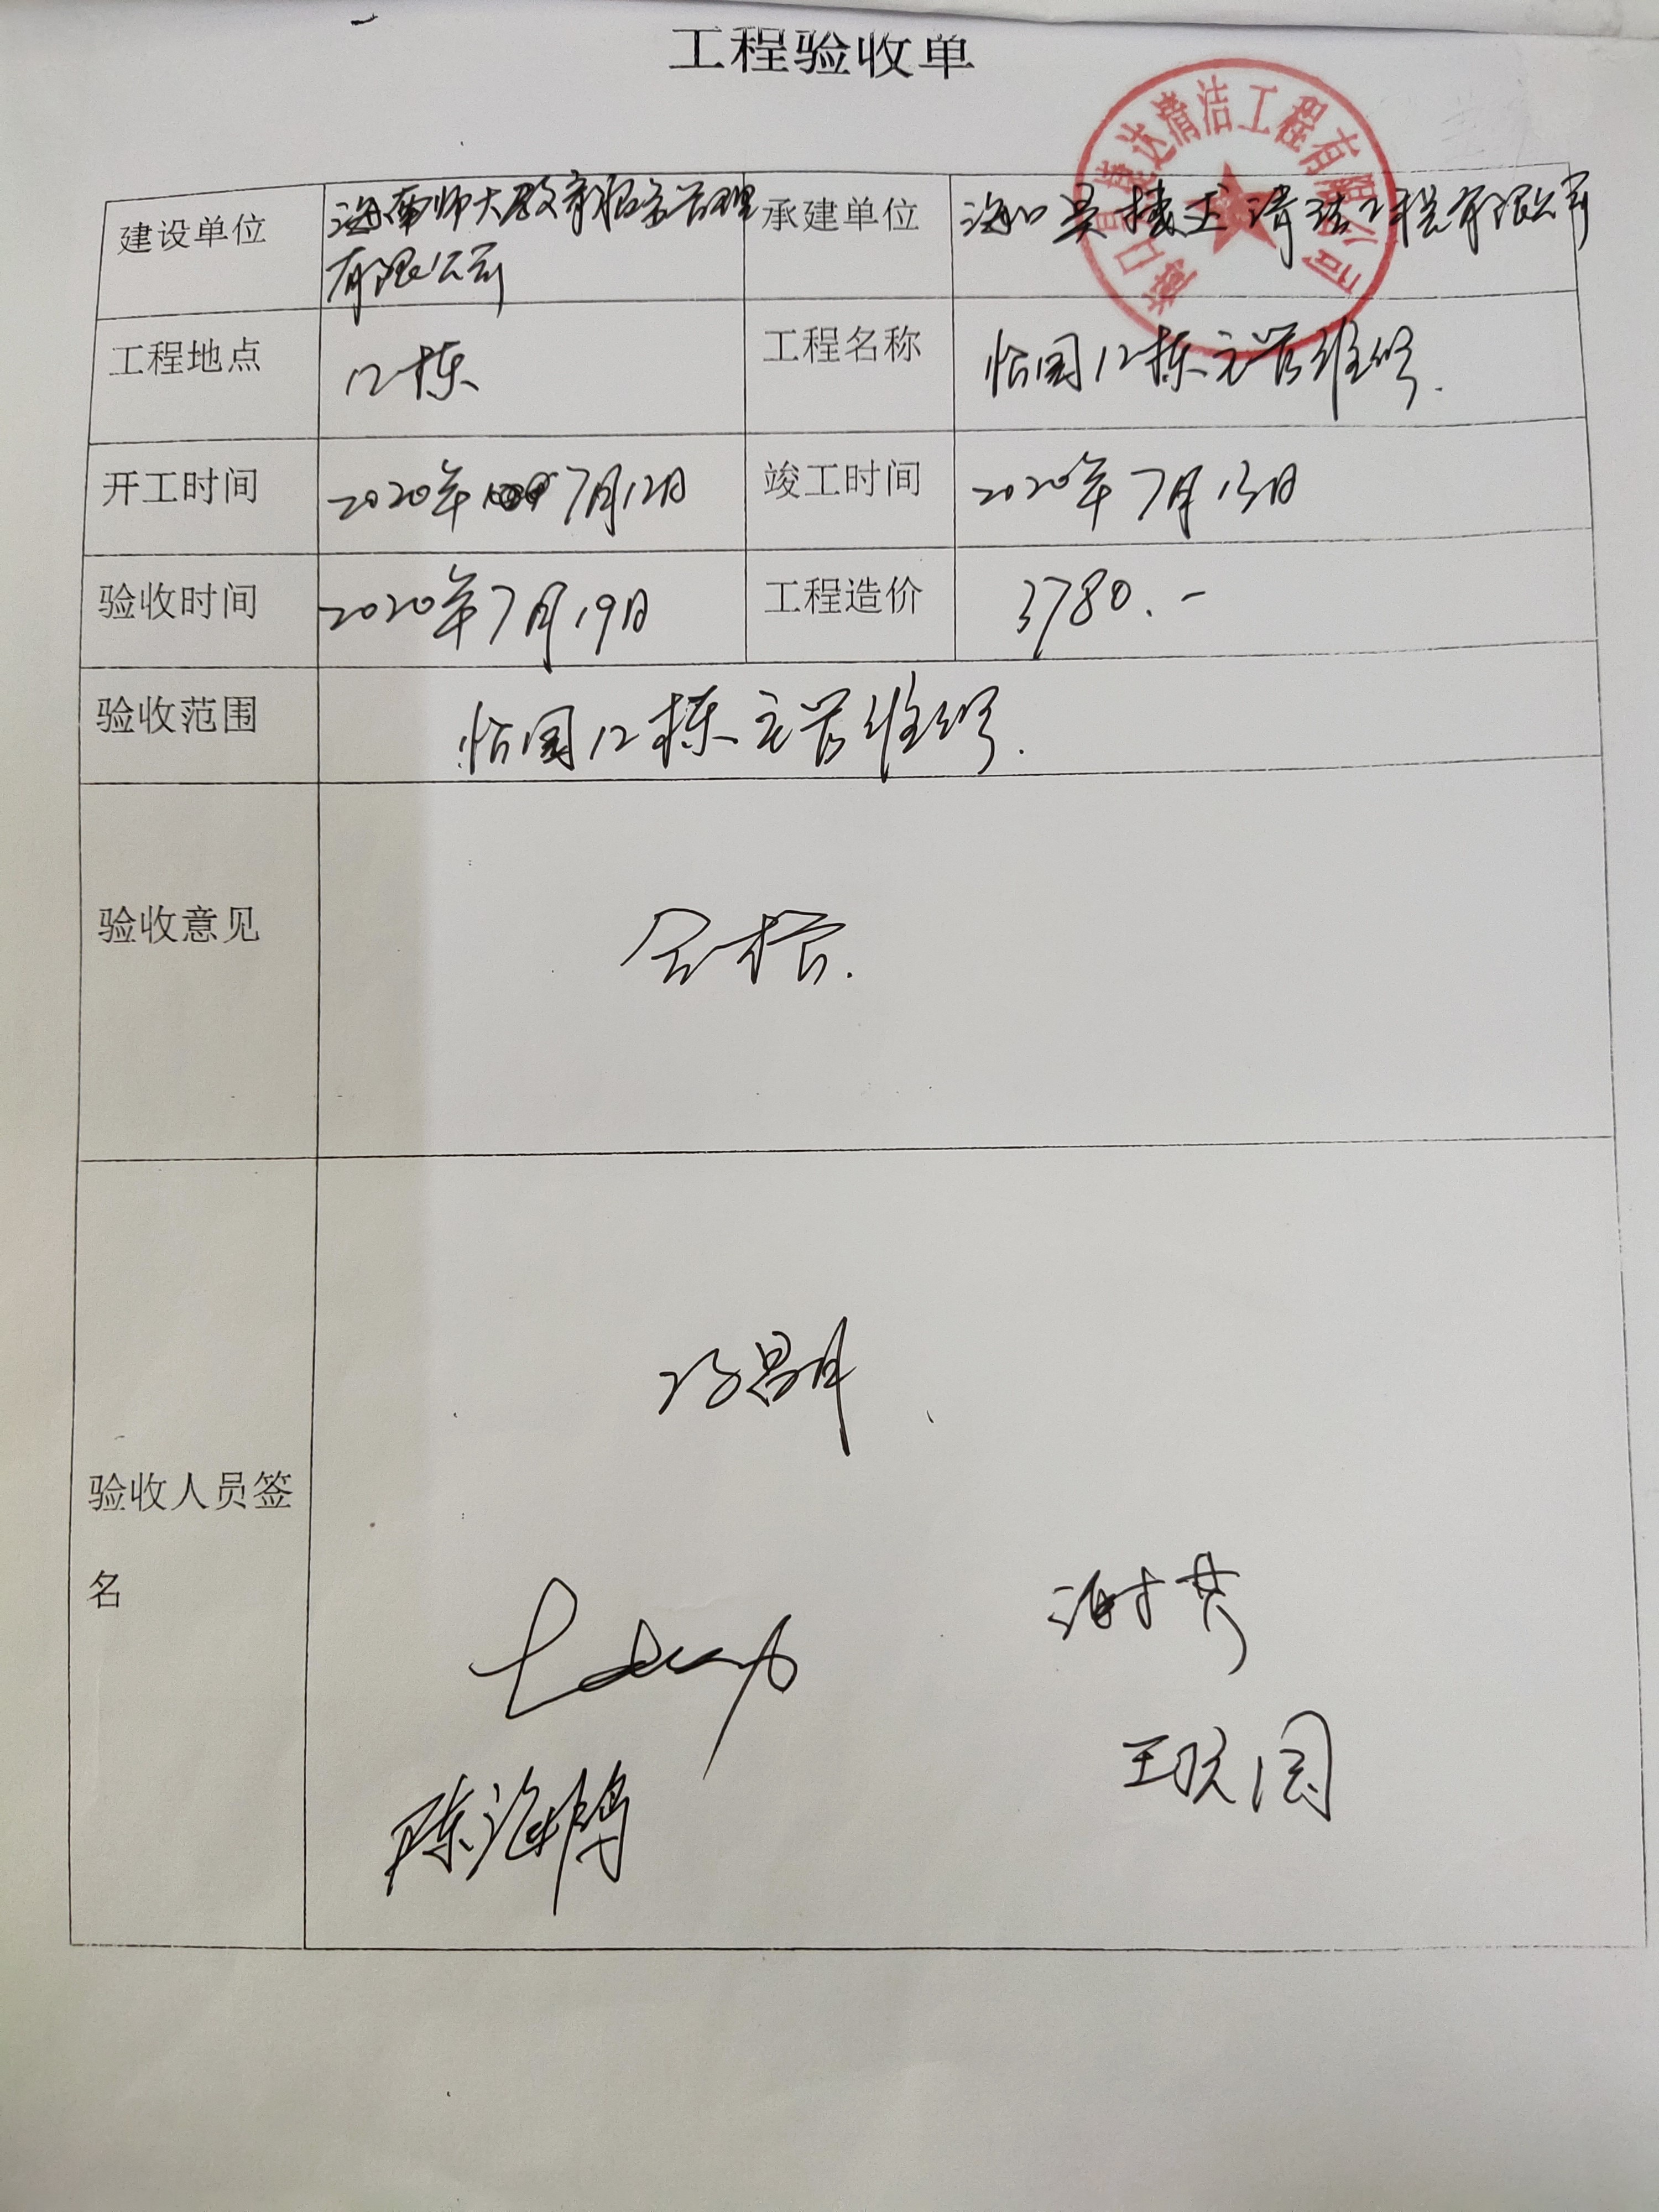 工程验收单
海口昊捷达清洁工程有限公司
建设单位 海南师大教育招家管理 承建单位 海口昊捷达清洁工程有限公司
有限公司
工程地点 12栋 工程名称 怡园12栋主管维修.
开工时间 2020年 7月12日 竣工时间 2020年7月13日
验收时间 2020年7月19日 工程造价 3780.-
验收范围 怡园12栋主管维修.
验收意见 合格.
验收人员签
名
陈海鹏